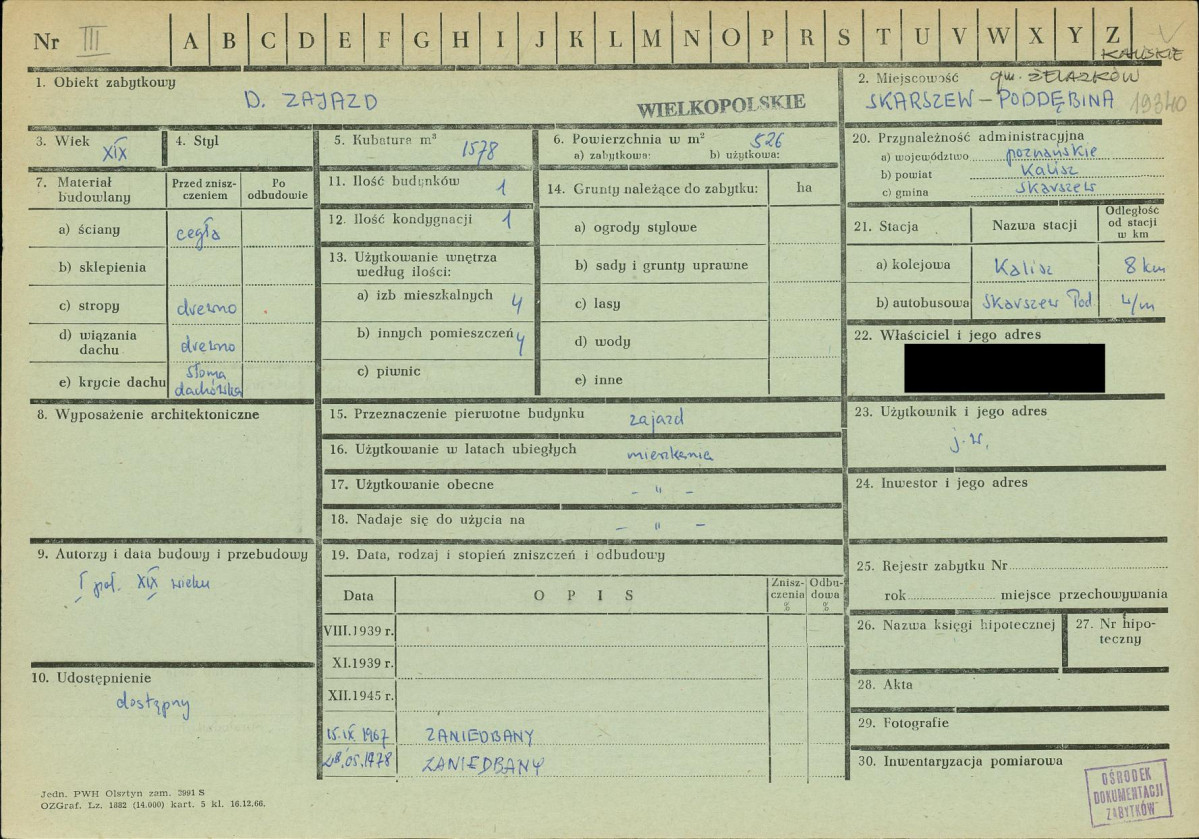 Nr III A B C D E F G H I J K L M N O P R S T U V W X Y Z
KALISKIE
1. Obiekt zabytkowy
D. ZAJAZD
WIELKOPOLSKIE
2. Miejscowość gm. ŻELAZKÓW
SKARSZEW – PODDĘBINA 19340
3. Wiek XIX
4. Styl
5. Kubatura m³ 1578
6. Powierzchnia w m² 526
a) zabytkowa: b) użytkowa:
20. Przynależność administracyjna
a) województwo poznańskie
b) powiat Kalisz
c) gmina Skarszew
7. Materiał budowlany
Przed zniszczeniem
Po odbudowie
a) ściany cegła
b) sklepienia
c) stropy drewno
d) wiązania dachu drewno
e) krycie dachu słoma dachówka
11. Ilość budynków 1
12. Ilość kondygnacji 1
13. Użytkowanie wnętrza
według ilości:
a) izb mieszkalnych 4
b) innych pomieszczeń 4
c) piwnic
14. Grunty należące do zabytku: ha
a) ogrody stylowe
b) sady i grunty uprawne
c) lasy
d) wody
e) inne
21. Stacja Nazwa stacji Odległość od stacji w km
a) kolejowa Kalisz 8 km
b) autobusowa Skarszew Pod. w/m
22. Właściciel i jego adres
8. Wyposażenie architektoniczne
15. Przeznaczenie pierwotne budynku zajazd
16. Użytkowanie w latach ubiegłych mieszkania
17. Użytkowanie obecne – " –
18. Nadaje się do użycia na – " –
23. Użytkownik i jego adres
j.w.
24. Inwestor i jego adres
9. Autorzy i data budowy i przebudowy
I poł. XIX wieku
10. Udostępnienie
dostępny
19. Data, rodzaj i stopień zniszczeń i odbudowy
Data OPIS Zniszczenia % Odbudowa %
VIII.1939 r.
XI.1939 r.
XII.1945 r.
15.IX.1967 ZANIEDBANY
28.05.1978 ZANIEDBANY
25. Rejestr zabytku Nr
rok miejsce przechowywania
26. Nazwa księgi hipotecznej
27. Nr hipoteczny
28. Akta
29. Fotografie
30. Inwentaryzacja pomiarowa
OŚRODEK
DOKUMENTACJI
ZABYTKÓW
Jedn. PWH Olsztyn zam. 2991 S
OZGraf. Lz. 1882 (14.000) kart. 5 kl. 16.12.66.